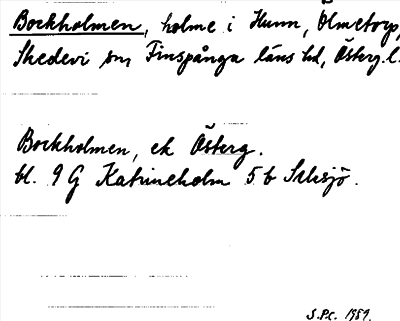 Bockholmen, holme i Hunn, Olmetorp,
Skedevi sn Finspånga läns hd, Österg. l.
Bockholmen, ek Österg.
bl. 9 G Katrineholm 5 b Silvsjö.
S.P.C. 1951.